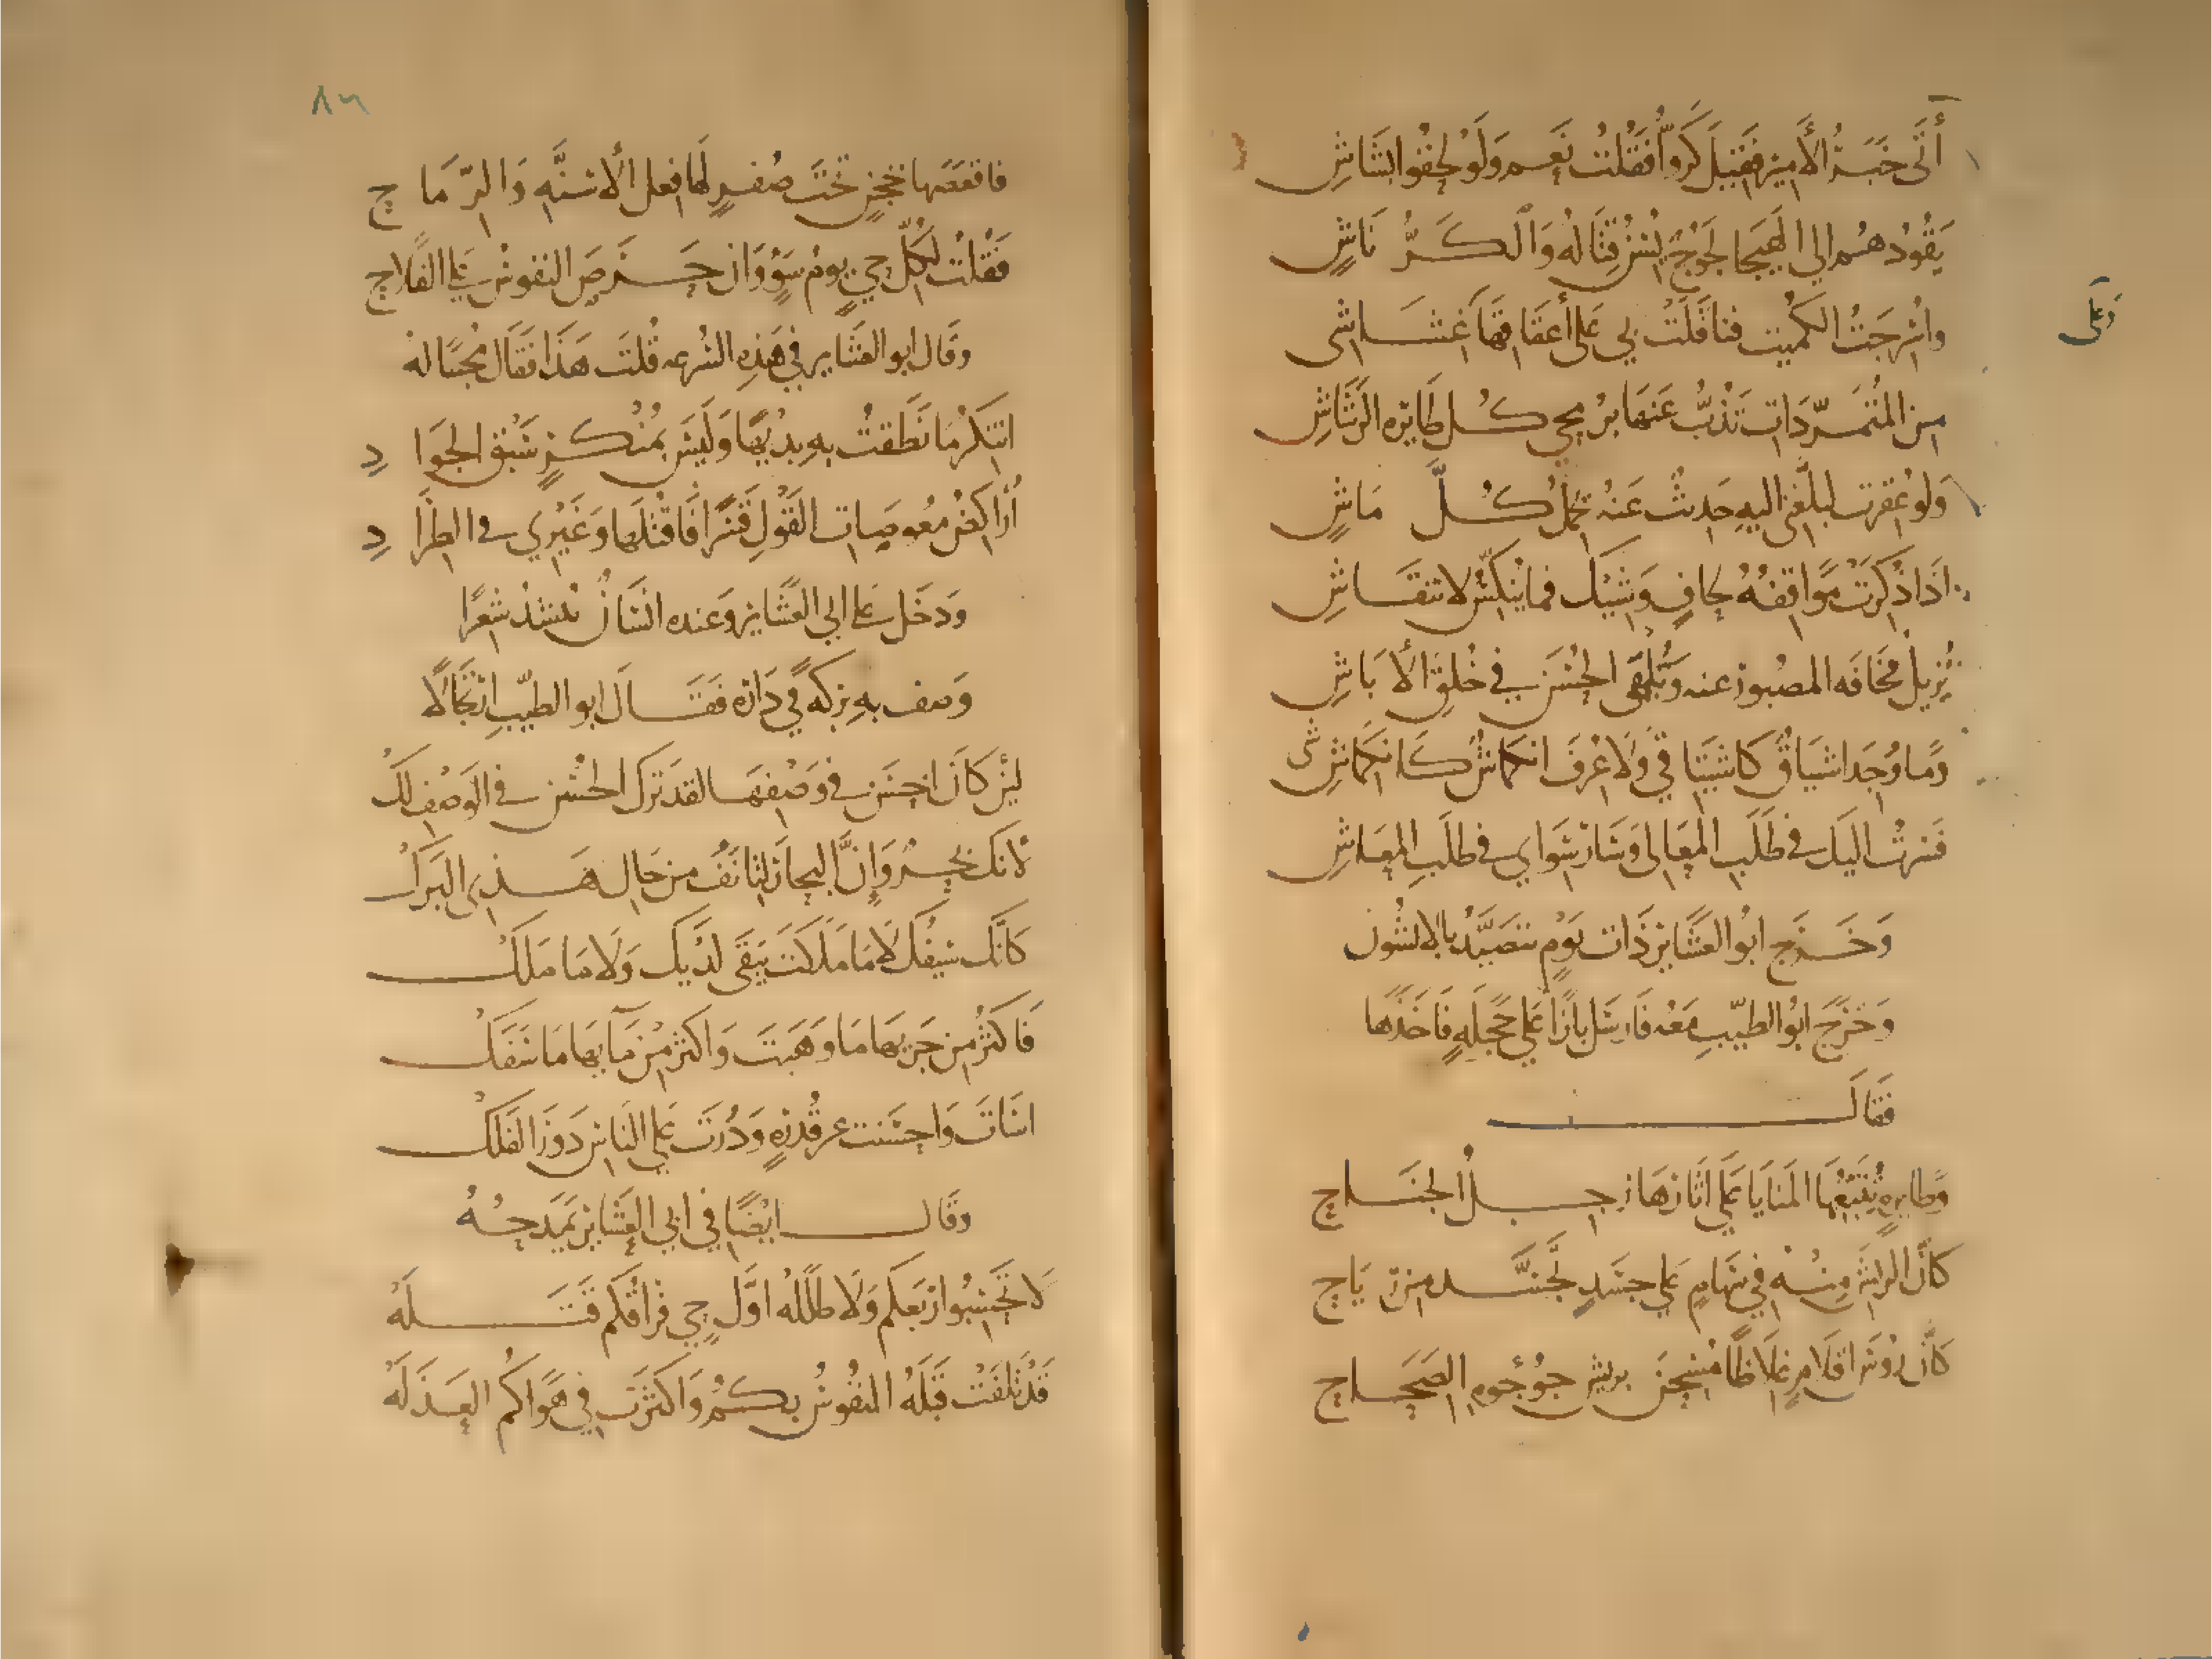 أَتَى خَبَرُ الأَمِيرِ فَقِيلَ كَرُّوا فَقُلْتُ نَعَم وَلَوْ لَحِقُوا بِشَاشِ
يَقُودُهُم إلى الهَيْجَا لَجُوجٌ يُسِنُّ قِتَالُهُ وَالكَرُّ نَاشٍ
وَأُسْرِجَتُ الكُمَيْت فَنَاقَلَتْ بِي عَلَى أَعْقَاقِهَا غَشَاشى
مِنَ المُتَمَرِّدَاتِ تَذُبُّ عَنْهَا برُمحي كُل طَايِرَه الرَّشَاشِ
وَلَو عُقِرَت لَبَلَّغَنى اليهِ حَدِيثٌ عَنْهُ يَحْمِلُ كُلَّ مَاشٍ
اذَا ذُكِرَتْ مَوَاقِفُهُ لحَافٍ وَشِيْكَ فَمَا يُنَكِّسُ لانتقَاشِ
تُزِيلُ مَخَافَه المصْبُورِ عَنه وَتُلْهِى الحُسْنَ في خُلقِ الأَبَاشِ
وَمَا وُجِدَ اشْتِيَاقٌ كَاشْتِيَاقي وَلَا عُرِفَ انكمَاشٌ كَانكمَاشِى
فَسِرْتُ اليكَ في طَلَبِ المَعَالى وَسَارَ سِوَايَ في طلَبِ المعَاشِ
وَخَرَج ابُو العَشَايِر ذَات يَوْمٍ يتصَيَّدُ بالاشُون
وَخَرَجَ ابُو الطيّبِ مَعَه فَارسَل بازًا عَلى حَجَلَهٍ فَاخَذَهَا
فَقَالَ
وَطَايِرهٍ تُتَبِّعُهَا المَنَايَا عَلَى اثَارِهَا زجِلُ الجَنَاحِ
كَأَنَّ الرِيْشَ مِنْهُ في سَهَامٍ عَلى جَسَدٍ تَجَسَّد مِن رِيَاحِ
كَأَنَّ رُوسَ اقلَامٍ غِلَاظًا مُسِحْنَ بريشِ جُوجُوءِ الصِّحَاحِ
وَعَلَى
٨٦
فَاقعَصَهَا بحُجنٍ تَحْتَ صُفرٍ لهَا فِعل الأسنّهِ وَالرّمَاحِ
فَقُلْتُ لكُلّ حيٍّ يومُ سَوْءٍ وَان حَرَصَ النفُوسُ عَلى الفَلَاحِ
وقَال ابو العَشَاير في هَذِهِ السُرعه قُلتَ هَذَا فَقَالَ مُجِيبًا لهُ
اتُنكِرُ مَا نَطَقْتُ بِهِ بِدِيهًا وَلَيْسَ بمُنْكَرٍ سَبْقُ الجَوَادِ
أُرَاكِضُ مُعْوِصَات القَوْلِ قَسْرًا فَاقتُلهَا وَغَيْري في الطِرَادِ
وَدَخَل عَلى ابي العَشَاير وَعنده انْسَانٌ يُنشدُ شِعْرًا
وَصف بِهِ بِركَه في دَارِه فقَالَ ابو الطيّبِ ارْتجَالًا
لَئِن كَانَ احسَنَ في وَصْفِهَا لقدَ تَرَكَ الحُسْنَ في الوَصْفِ لَكْ
لانكَ بحْرٌ وَإِنَّ البحَارَ لتَانَفُ مِن حَالِ هَذِى البَرَكْ
كَأَنَّكَ سَيْفُكَ لَا مَا مَلَكْتَ يَبقَى لَدَيْكَ وَلَا مَا مَلَكْ
فَاكْثَرُ مِن جَرْيِهَا مَا وَهَبْتَ وَاكثَرُ مِنْ مَآيِهَا مَا سَفَكْ
اسَاتَ وَاحسَنتَ عَن قُدْرَهٍ وَدُرْتَ عَلى النَاسِ دَوْرَ الفَلكْ
وقَال ايْضًا في ابي العَشَاير يَمدَحُهُ
لَا تَحْسِبُوا رَبْعَكُم وَلَا طَلَلَهْ اوَّلَ حيٍ فرَاقُكُم قَتَلَهْ
قَدْ تَلِفَتْ قَبْلَهُ النفُوسُ بِكُمُ وَاكثَرَت في هَوَاكُم العَذَلَهْ